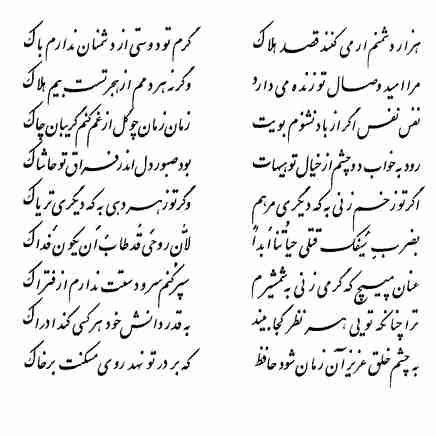 هزار دشمنم ار می کنند قصد هلاک گرم تو دوستی از دشمنان ندارم باک
مرا امید وصال تو زنده می دارد وگرنه هر دمم از هجر تست بیم هلاک
نفس نفس اگر از باد نشنوم بویت زمان زمان چو گل از غم کنم گریبان چاک
رود به خواب دو چشم از خیال تو هیهات بود صبور دل اندر فراق تو حاشاک
اگر تو زخم زنی به که دیگری مرهم وگر تو زهر دهی به که دیگری تریاک
بضرب سیفک قتلی حیاتنا ابداً لأن روحی قد طاب أن یکون فداک
عنان مپیچ که گر می زنی به شمشیرم سپر کنم سر و دستت ندارم از فتراک
ترا چنانکه تویی هر نظر کجا بیند به قدر دانش خود هر کسی کند ادراک
به چشم خلق عزیز آن زمان شود حافظ که بر در تو نهد روی مسکنت بر خاک